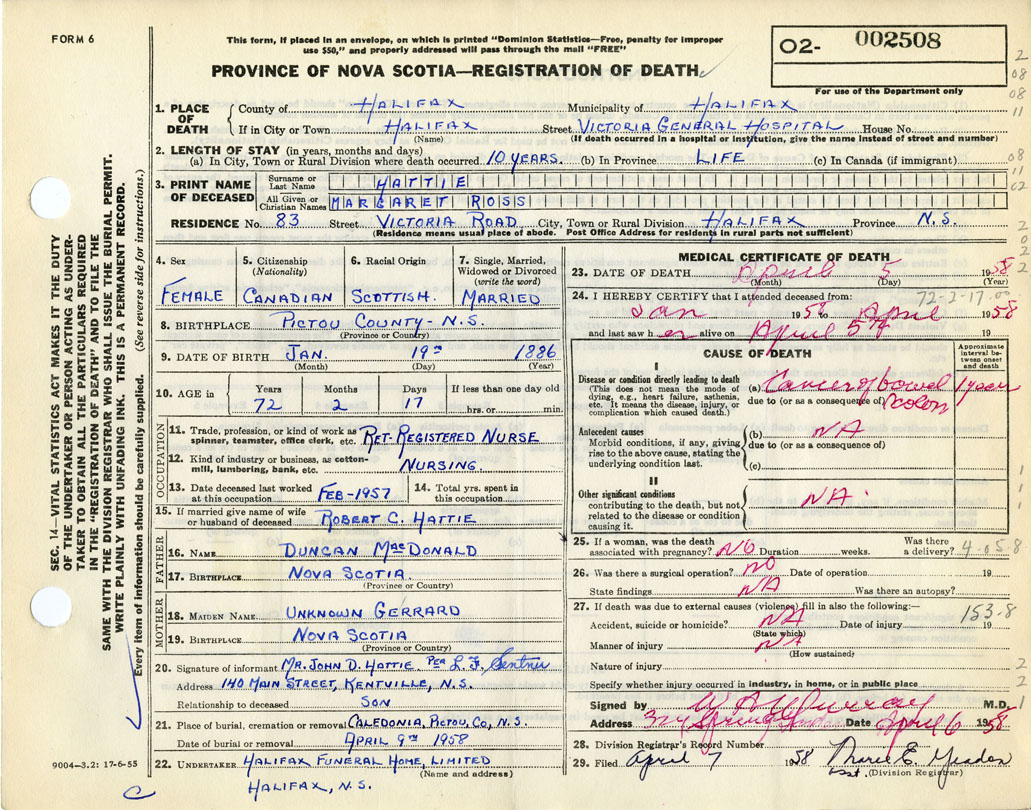 FORM 6
This form, if placed in an envelope, on which is printed "Dominion Statistics—Free, penalty for improper
use $50," and properly addressed will pass through the mail "FREE"
PROVINCE OF NOVA SCOTIA—REGISTRATION OF DEATH
O2- 002508
For use of the Department only
1. PLACE OF DEATH County of HALIFAX Municipality of HALIFAX
If in City or Town HALIFAX Street VICTORIA GENERAL HOSPITAL House No.
(Name) (If death occurred in a hospital or institution, give the name instead of street and number)
2. LENGTH OF STAY (in years, months and days)
(a) In City, Town or Rural Division where death occurred 10 YEARS. (b) In Province LIFE (c) In Canada (if immigrant)
3. PRINT NAME OF DECEASED Surname or Last Name HATTIE
All Given or Christian Names MARGARET ROSS
RESIDENCE No. 83 Street VICTORIA ROAD City, Town or Rural Division HALIFAX Province N.S.
(Residence means usual place of abode. Post Office Address for residents in rural parts not sufficient)
4. Sex FEMALE
5. Citizenship (Nationality) CANADIAN
6. Racial Origin SCOTTISH.
7. Single, Married, Widowed or Divorced (write the word) MARRIED
8. BIRTHPLACE PICTOU COUNTY - N.S.
(Province or Country)
9. DATE OF BIRTH JAN. 19TH 1886
(Month) (Day) (Year)
10. AGE in Years 72 Months 2 Days 17 If less than one day old hrs. or min.
OCCUPATION
11. Trade, profession, or kind of work as spinner, teamster, office clerk, etc. RET-REGISTERED NURSE
12. Kind of industry or business, as cotton-mill, lumbering, bank, etc. NURSING.
13. Date deceased last worked at this occupation FEB-1957 14. Total yrs. spent in this occupation
15. If married give name of wife or husband of deceased ROBERT C. HATTIE
FATHER
16. NAME DUNCAN MACDONALD
17. BIRTHPLACE NOVA SCOTIA.
(Province or Country)
MOTHER
18. MAIDEN NAME UNKNOWN GERRARD
19. BIRTHPLACE NOVA SCOTIA
(Province or Country)
20. Signature of informant MR. JOHN D. HATTIE PER L.F. Sentner
Address 140 MAIN STREET, KENTVILLE, N.S.
Relationship to deceased SON
21. Place of burial, cremation or removal CALEDONIA, PICTOU, CO., N.S.
Date of burial or removal APRIL 9TH 1958
22. UNDERTAKER HALIFAX FUNERAL HOME, LIMITED
(Name and address)
HALIFAX, N.S.
9004-3.2: 17-6-55
MEDICAL CERTIFICATE OF DEATH
23. DATE OF DEATH April 5 1958
(Month) (Day) (Year)
72-2-17.00
24. I HEREBY CERTIFY that I attended deceased from:
Jan 195 to April 1958
and last saw her alive on April 5th 19
CAUSE OF DEATH
Approximate interval between onset and death
I
Disease or condition directly leading to death
(This does not mean the mode of dying, e.g., heart failure, asthenia, etc. It means the disease, injury, or complication which caused death.)
(a) Cancer of bowel 1 year
due to (or as a consequence of) colon
Antecedent causes
Morbid conditions, if any, giving rise to the above cause, stating the underlying condition last.
(b) NA
due to (or as a consequence of)
(c)
II
Other significant conditions
contributing to the death, but not related to the disease or condition causing it.
NA.
25. If a woman, was the death associated with pregnancy? NO Duration weeks. Was there a delivery? 4-05.8
26. Was there a surgical operation? NO Date of operation 19
State findings NA Was there an autopsy?
27. If death was due to external causes (violence) fill in also the following:—
153.8
Accident, suicide or homicide? NA Date of injury 19
(State which)
Manner of injury NA
(How sustained)
Nature of injury
Specify whether injury occurred in industry, in home, or in public place
Signed by W A Murray M.D.
Address Spring Date April 6 1958
28. Division Registrar's Record Number
29. Filed April 7 1958 Marie E.
Asst. (Division Registrar)
SEC. 14—VITAL STATISTICS ACT MAKES IT THE DUTY
OF THE UNDERTAKER OR PERSON ACTING AS UNDER-
TAKER TO OBTAIN ALL THE PARTICULARS REQUIRED
IN THE "REGISTRATION OF DEATH" AND TO FILE THE
SAME WITH THE DIVISION REGISTRAR WHO SHALL ISSUE THE BURIAL PERMIT.
WRITE PLAINLY WITH UNFADING INK. THIS IS A PERMANENT RECORD.
Every item of information should be carefully supplied. (See reverse side for instructions.)
2
08
08
11
08
11
02
2
0
2
2
1
1
1
2
2
1